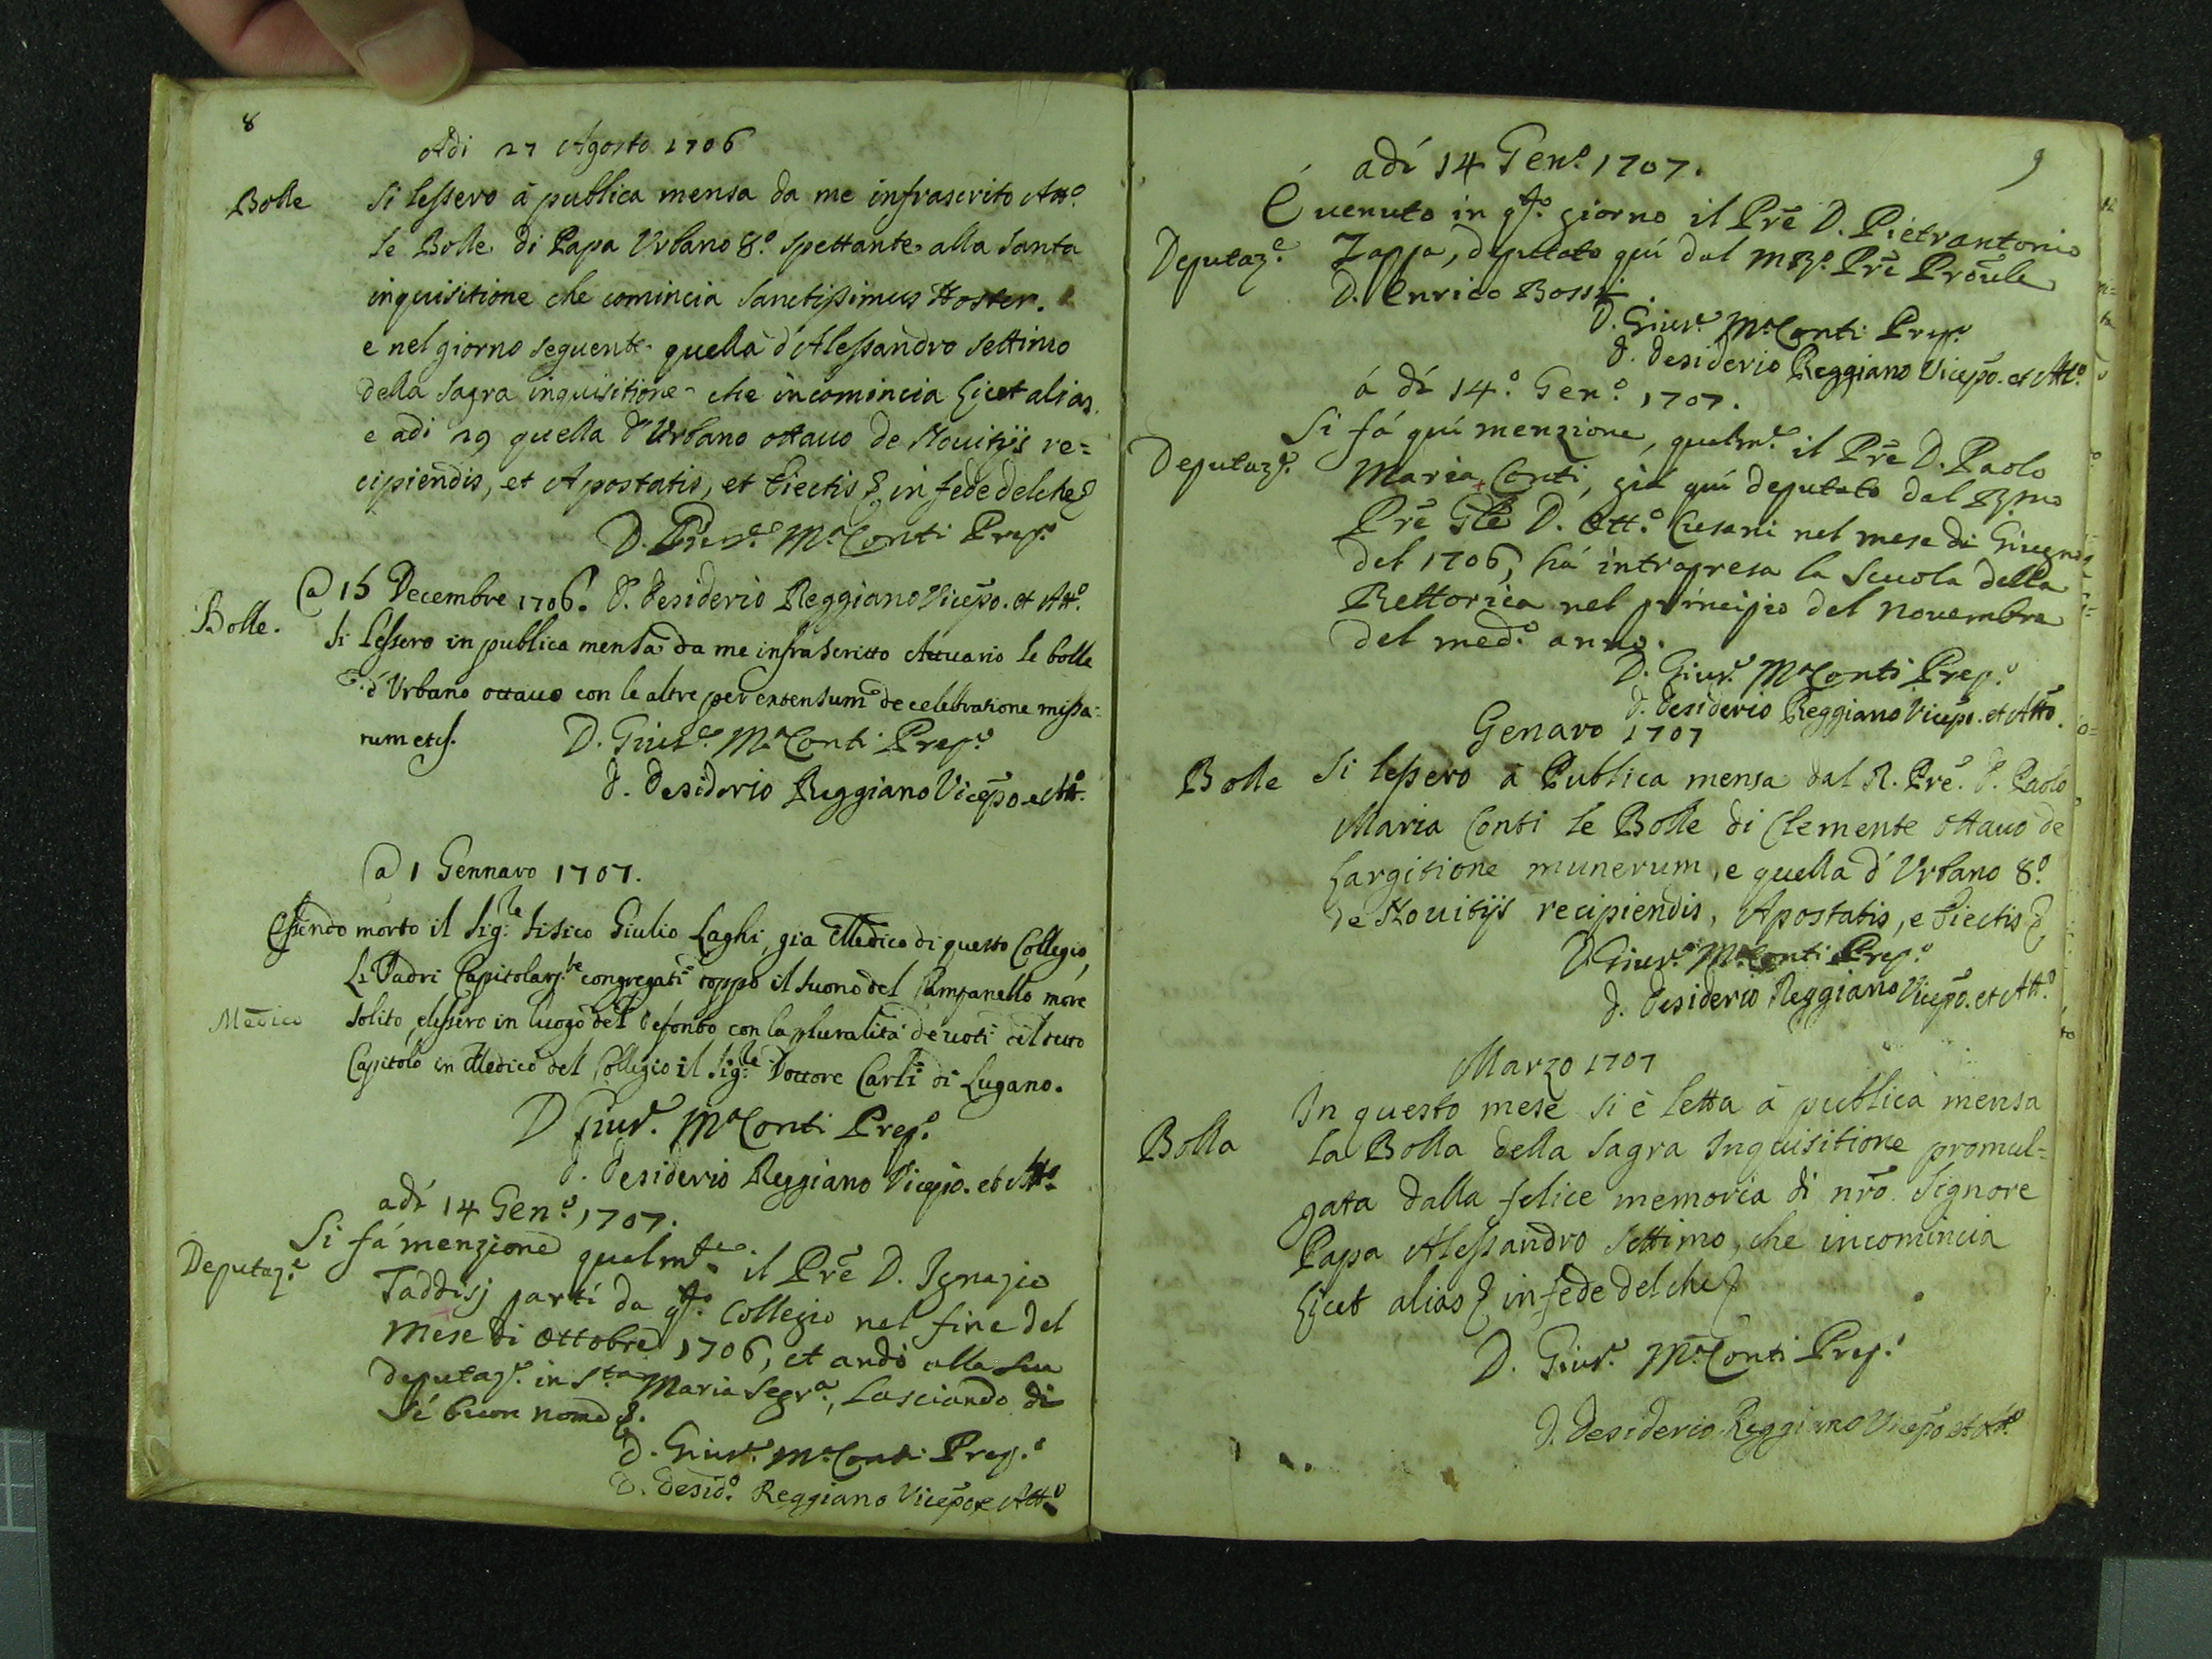 8
Adi 27 Agosto 1706
Bolle Si lessero à publica mensa da me infrascrito Att.o
le Bolle di Papa Urbano 8.o spettante alla Santa
inquisitione che comincia Sanctissimus Noster.
e nel giorno seguente quella d'Alessandro settimo
della Sagra inquisitione che incomincia Licet alias.
e adi 29 quella d'Urbano ottavo de Nouitijs re=
cipiendis, et Apostatis, et Eiectis & in fede del che &
D. Gius.e M.a Conti Prep.o
@ 15 Decembre 1706. D. Desiderio Reggiano Vicepo. et Att.o
Bolle. Si lessero in publica mensa da me infrascritto Attuario le bolle
d'Urbano ottauo con le altre per extensum de celebratione missa=
rum etc.
D. Gius.e M.a Conti Prep.o
D. Desiderio Reggiano Vicepo. e Att.o
@ 1 Gennaro 1707.
Essendo morto il Sig.re fisico Giulio Laghi, gia Medico di questo Collegio,
Li Padri Capitolarj.te congregati doppo il suono del Campanello more
Medico solito elessero in luogo del defonto con la pluralità de uoti del
Capitolo in Medico del Collegio il Sig.re Dottore Carli di Lugano.
D Gius.e M.a Conti Prep.o
D. Desiderio Reggiano Vicepo. et Att.o
adì 14 Gen.o 1707.
Si fà menzione qualm.te il Prē D. Ignazio
Deputaz.e Taddisj partì da q.sto Collegio nel fine del
Mese di Ottobre 1706, et andò alla sua
deputaz.e in S.ta Maria Segr.a, lasciando di
sé buon nome &.
D. Gius.e M.a Conti Prep.o
D. Desid.o Reggiano Vicepo. e Att.o
9
adì 14 Gen.o 1707.
È uenuto in q.sto giorno il Prē D. Pietrantonio
Deputaz.e Zappa, deputato quì dal M.R.o Prē Proūle
D. Enrico Bossi.
D. Gius.e M.a Conti Prep.o
D. Desiderio Reggiano Vicepo. et Att.o
à dì 14.o Gen.o 1707.
Si fà quì menzione, qualm.e il Prē D. Paolo
Deputaz.e Maria Conti, già quì deputato dal Rmo
Prē Gle D. Ott.o Cusani nel mese di Giugno
del 1706, hà intrapresa la Scuola della
Rettorica nel principio del Novembre
del med.o anno.
D. Gius.e M.a Conti Prep.o
D. Desiderio Reggiano Vicepo. et Atto.
Genaro 1707
Bolle Si lessero à Publica mensa dal R. Prē. D. Paolo
Maria Conti le Bolle di Clemente ottauo de
Largitione munerum, e quella d'Urbano 8.o
de Nouitijs recipiendis, Apostatis, e Eiectis &
D. Gius.e M.a Conti Prep.o
D. Desiderio Reggiano Vicepo. et Att.o
Marzo 1707
In questo mese si è letta à publica mensa
Bolla la Bolla della Sagra Inquisitione promul=
gata dalla felice memoria di nro. Signore
Papa Alessandro settimo, che incomincia
Licet alias & in fede del che &
D. Gius.e M.a Conti Prep.o
D. Desiderio Reggiano Vicepo et Att.o